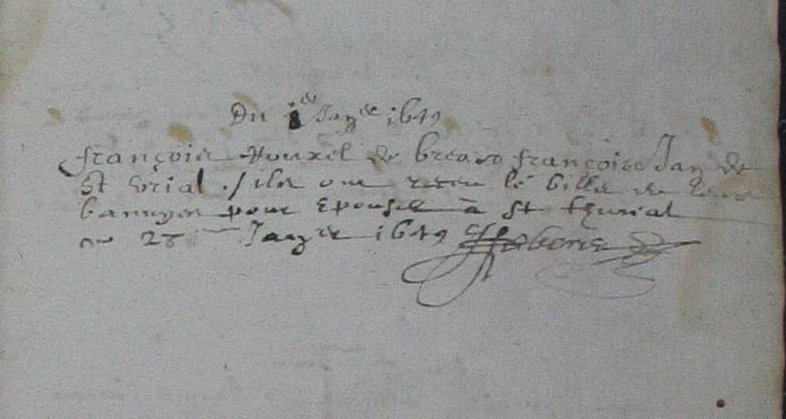 Du 1er Janer 1649
françois Rouxel de breal françoise Jan de
St Urial / ils ont receu le billet de leurs
bannyes pour Epouser à St thurial
ce 28 Janer 1649